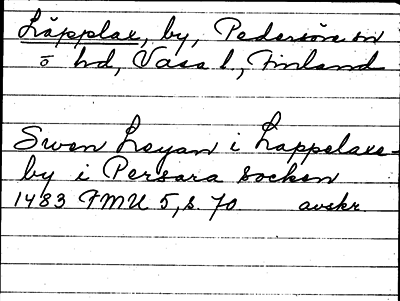 Läpplax, by, Pedersöre sn
ö hd, Vasa l, Finland
Swen Loyan i Lappelaxe-
by i Persara socken
1483 FMU 5, s. 70 avskr.